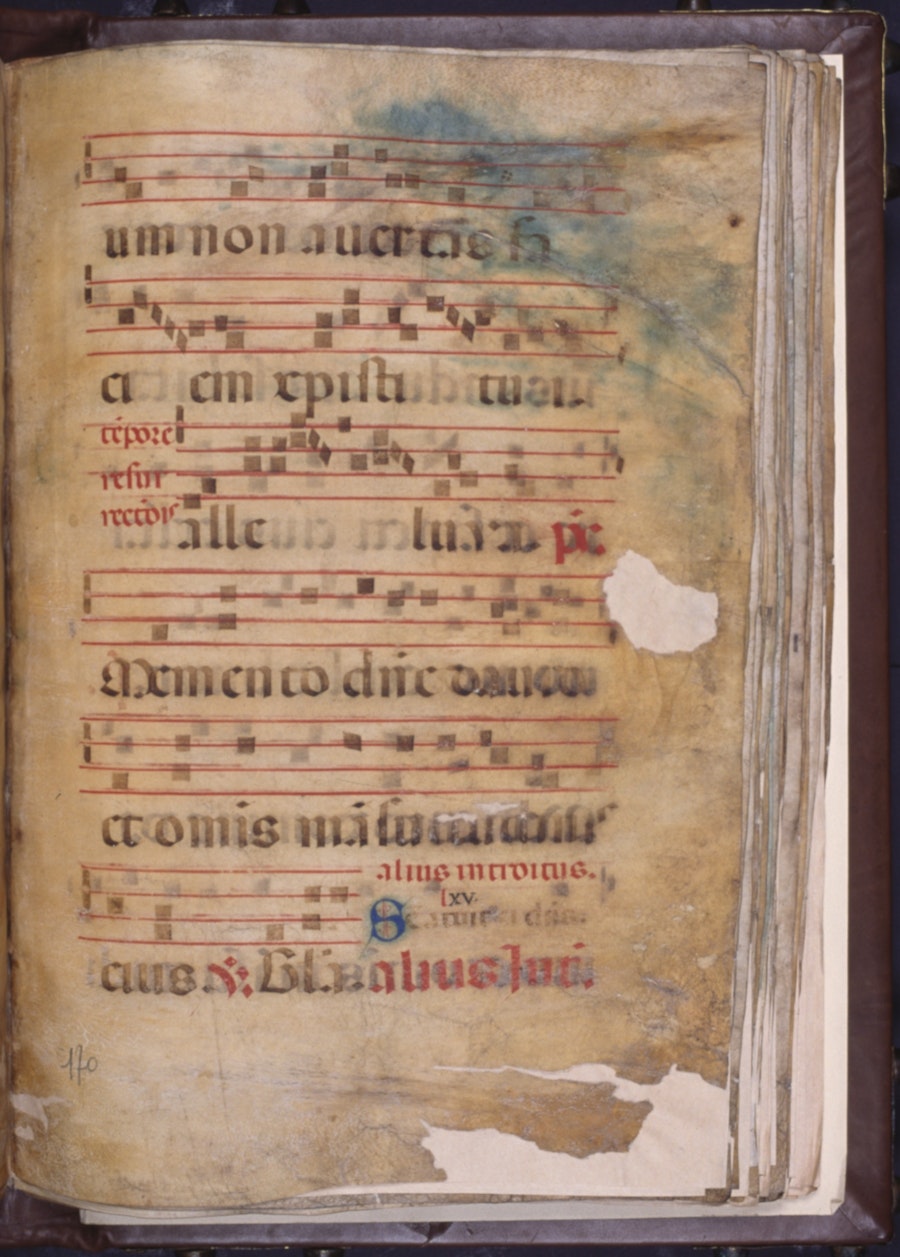 um non avertas fa
ci em xp̄isti tui
tēpore
resur
rectōis
alle luia ps.
Memento dn̄e david
et om̄is mansuetudinis
alius introitus.
lxv.
Statuit ei dn̄s
eius ℣. Gl̄ia alius Intr̄.
170